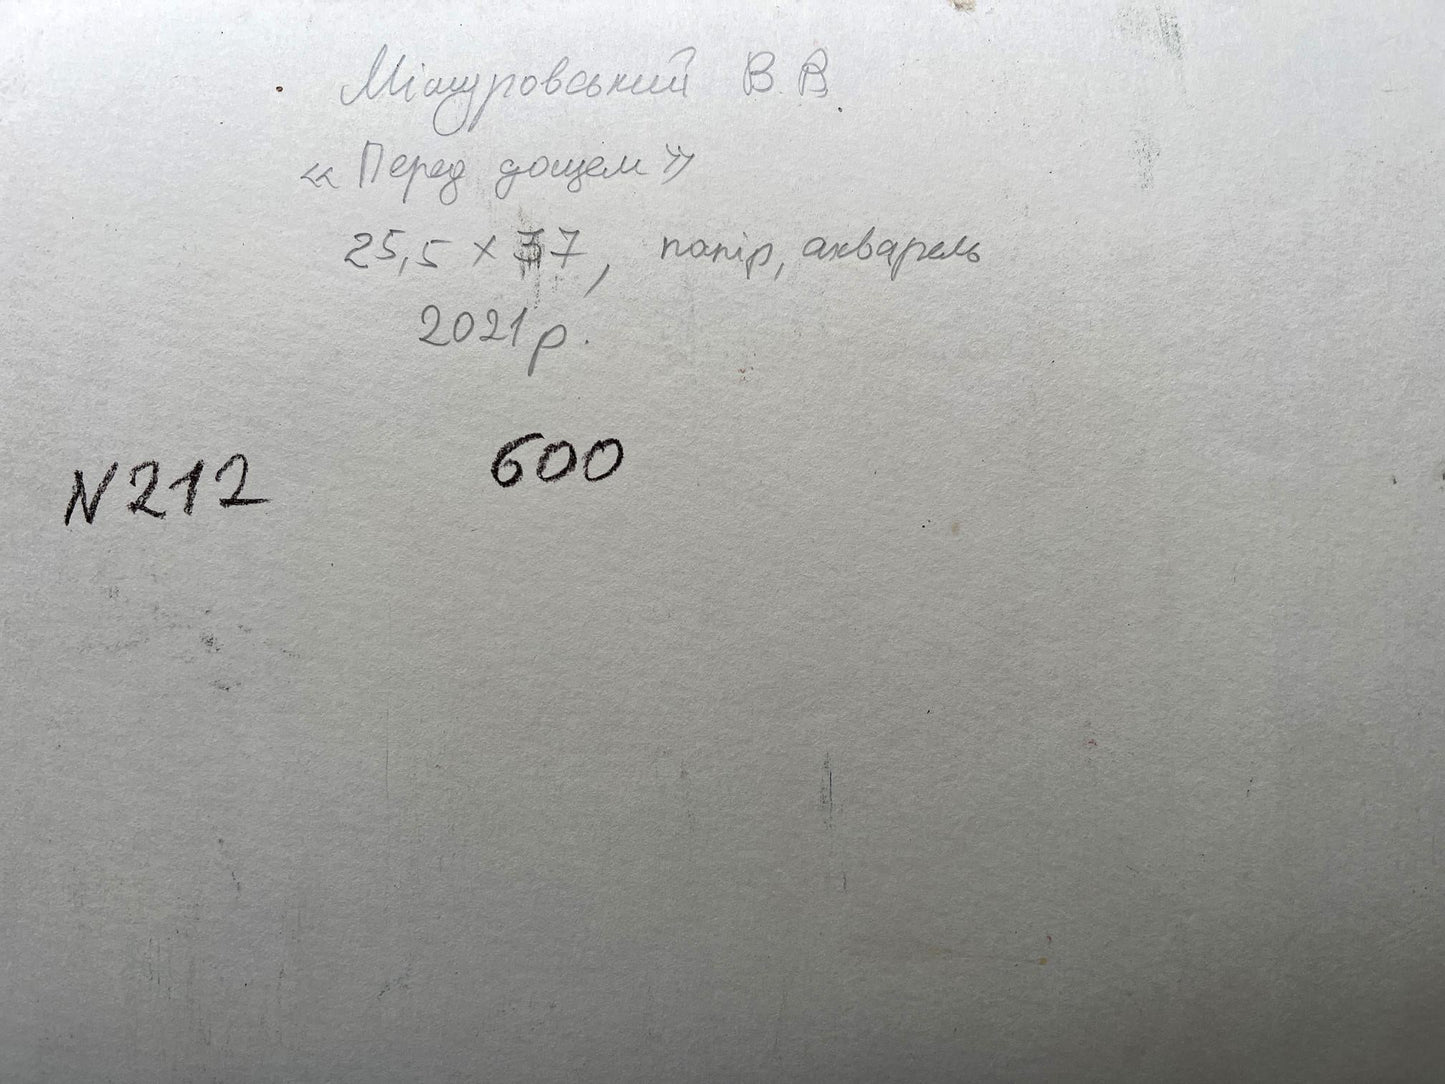 Мішуровський В.В.
«Перед дощем»
25,5 × 37, папір, акварель
2021 р.
N 212 600